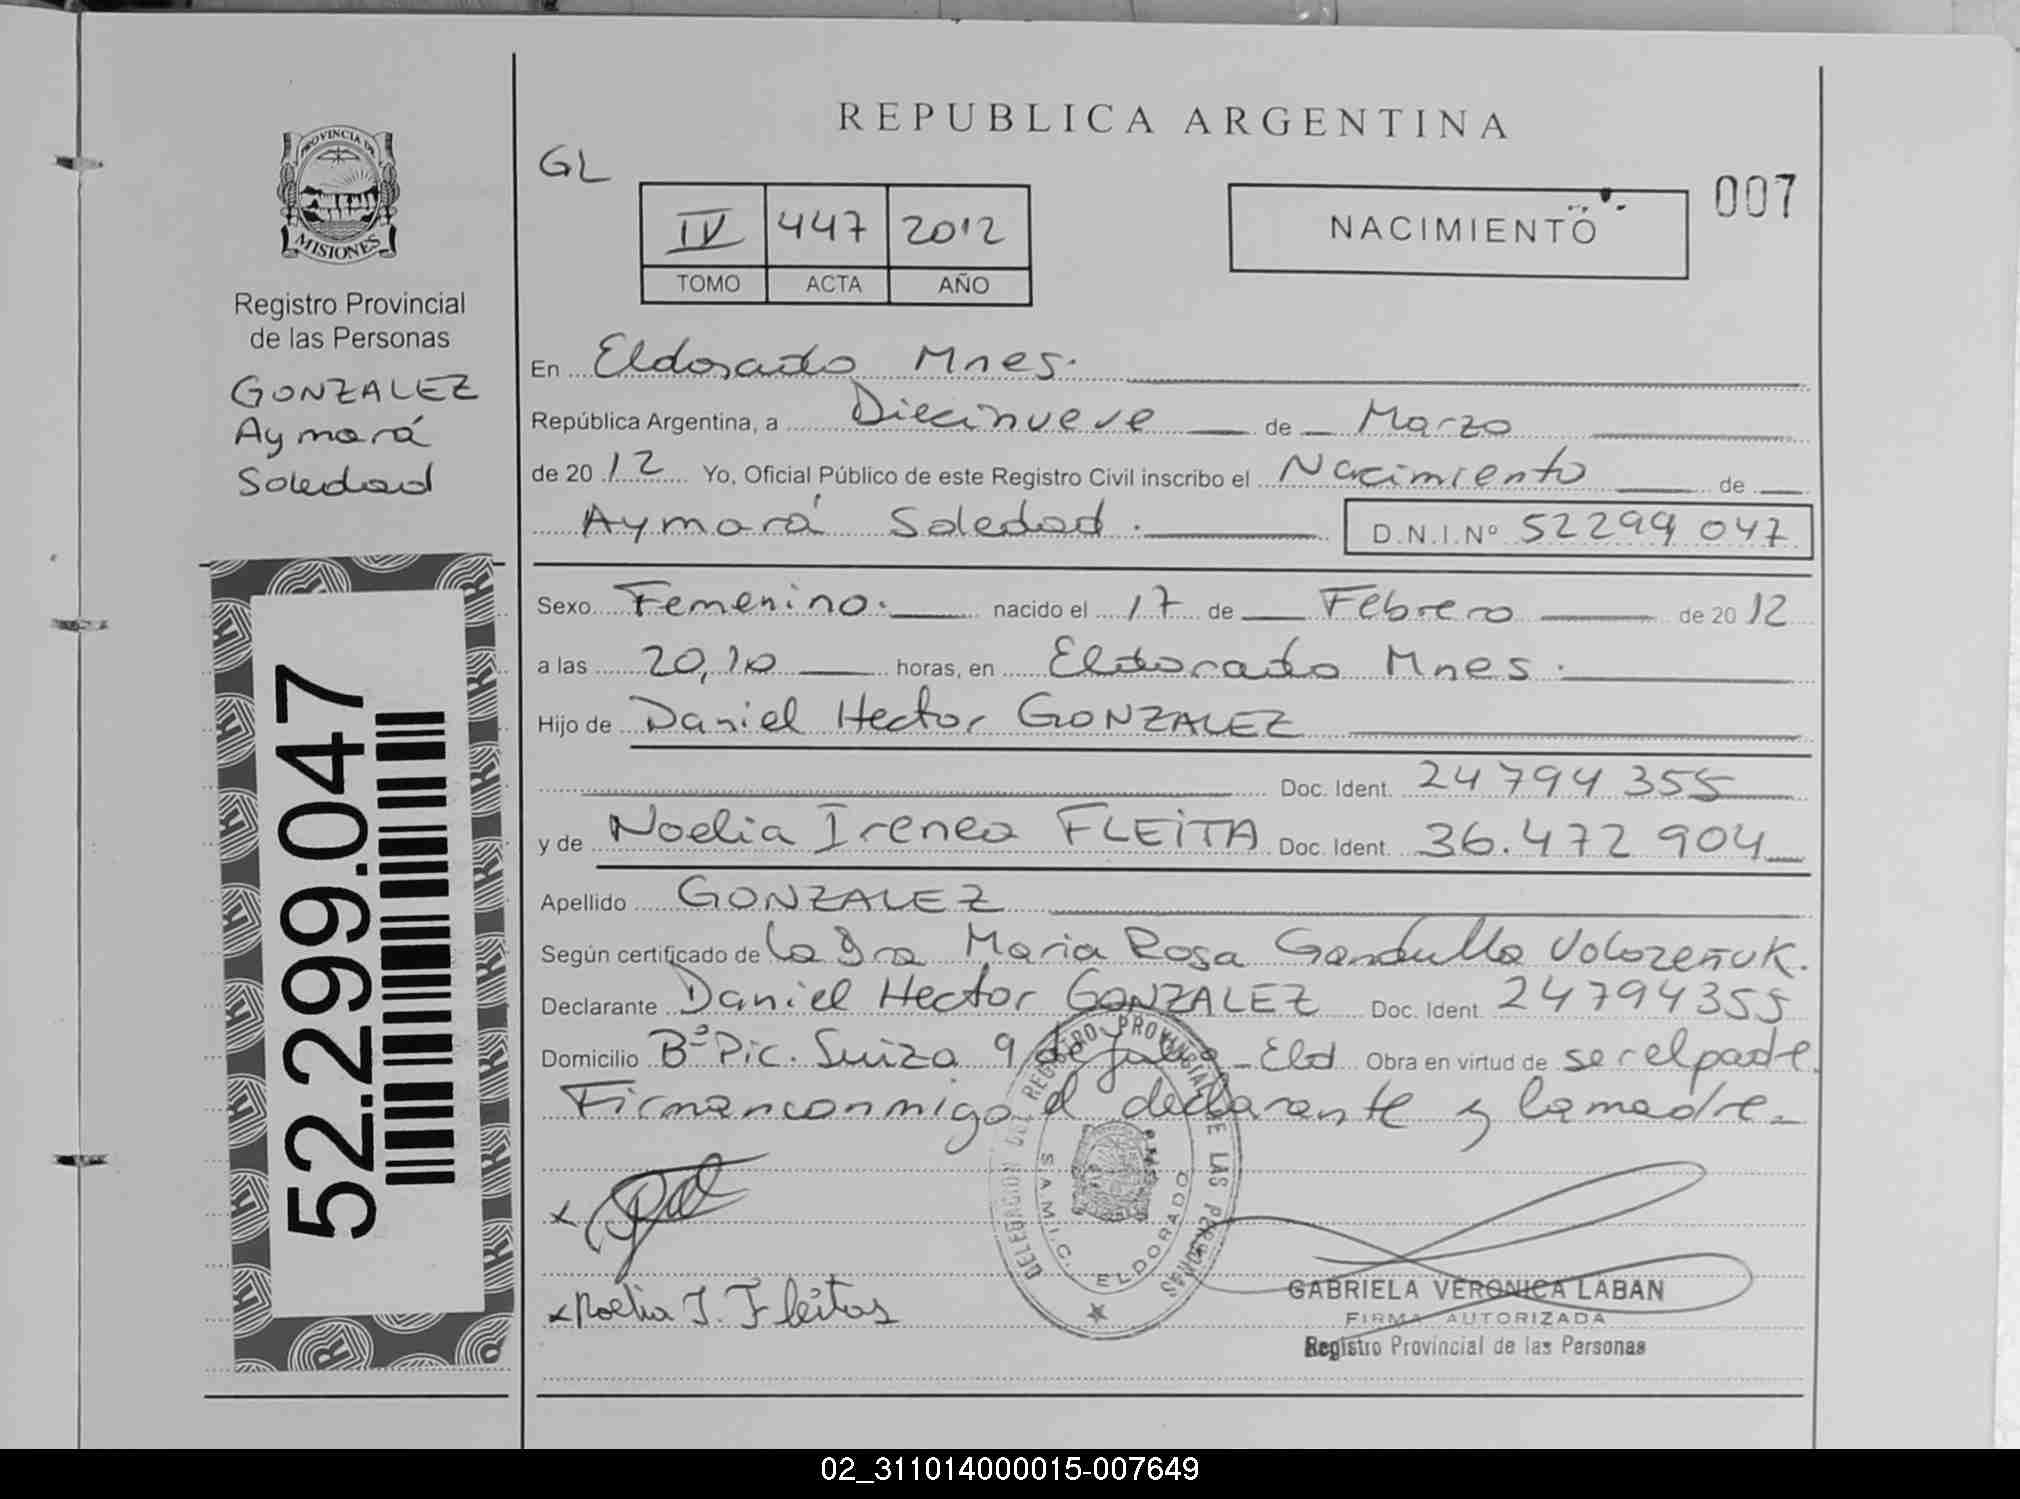 REPUBLICA ARGENTINA
GL
007
IV 447 2012
TOMO ACTA AÑO
NACIMIENTO
PROVINCIA DE
MISIONES
Registro Provincial
de las Personas
GONZALEZ
Aymará
Soledad
52.299.047
En Eldorado Mnes.
República Argentina, a Diecinueve de Marzo
de 2012 Yo, Oficial Público de este Registro Civil inscribo el Nacimiento de
Aymará Soledad. D.N.I.Nº 52299047
Sexo Femenino. nacido el 17 de Febrero de 2012
a las 20,10 horas, en Eldorado Mnes.
Hijo de Daniel Hector GONZALEZ
Doc. Ident. 24794355
y de Noelia Irenea FLEITA Doc. Ident. 36.472904
Apellido GONZALEZ
Según certificado de la Dra Maria Rosa Gandulla
Declarante Daniel Hector GONZALEZ Doc. Ident. 24794355
Domicilio Bº Pic. Suiza 9 de Julio - Eld Obra en virtud de ser el padre.
Firman conmigo el declarante y la madre.
DELEGACION DEL REGISTRO PROVINCIAL DE LAS PERSONAS
S.A.M.I.C. ELDORADO
x
x Noelia I. Fleitas
GABRIELA VERONICA LABAN
FIRMA AUTORIZADA
Registro Provincial de las Personas
02_311014000015-007649